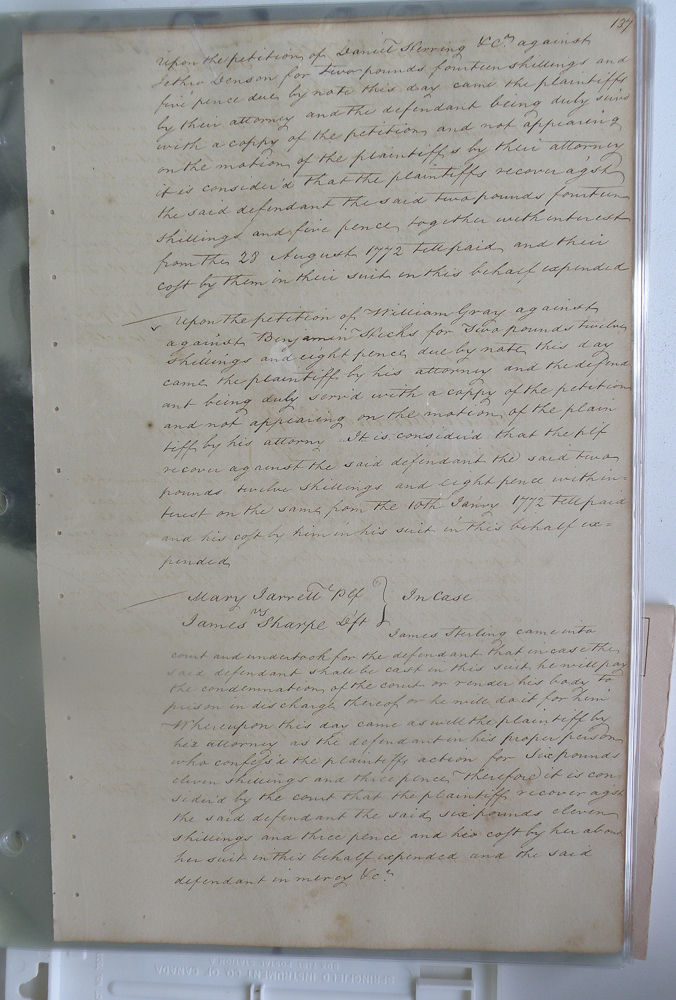 137
Upon the petition of Daniell Herring &Cº against
Jethro Denson for two pounds fourteen shillings and
five pence due by note this day came the plaintiffs
by their attorney and the defendant being duly serv'd
with a coppy of the petition and not appearing
on the motion of the plaintiffs by their attorney
it is consider'd that the plaintiffs recover agst
the said defendant the said two pounds fourteen
shillings and five pence together with interest
from the 28 August 1772 till paid and their
cost by them in their suit in this behalf expended
Upon the petition of William Gray against
against Benjamin for Two pounds twelve
shillings and eight pence due by note this day
came the plaintiff by his attorney and the defend
ant being duly serv'd with a coppy of the petition
and not appearing on the motion of the plain
tiff by his attorny It is consider'd that the plf
recover against the said defendant the said two
pounds twelve shillings and eight pence with in=
terest on the same from the 10th Janry 1772 till paid
and his cost by him in his suit in this behalf ex=
pended
Mary Jarrett Plf } In Case
vs
James Sharpe Dft
James Sterling came into
court and undertook for the defendant that in case the
said defendant shall be cast in this suit he will pay
the condemnation of the court or render his body to
prison in discharge thereof or he will do it for him
Whereupon this day came as well the plaintiff by
his attorney as the defendant in his proper person
who confess'd the plaintiffs action for Six pounds
eleven shillings and three pence therefore it is con
sider'd by the court that the plaintiff recover agst
the said defendant the said six pounds eleven
shillings and three pence and his cost by her about
her suit in this behalf expended and the said
defendant in mercy &c
SPRINGFIELD INSTRUMENT CO OF CANADA